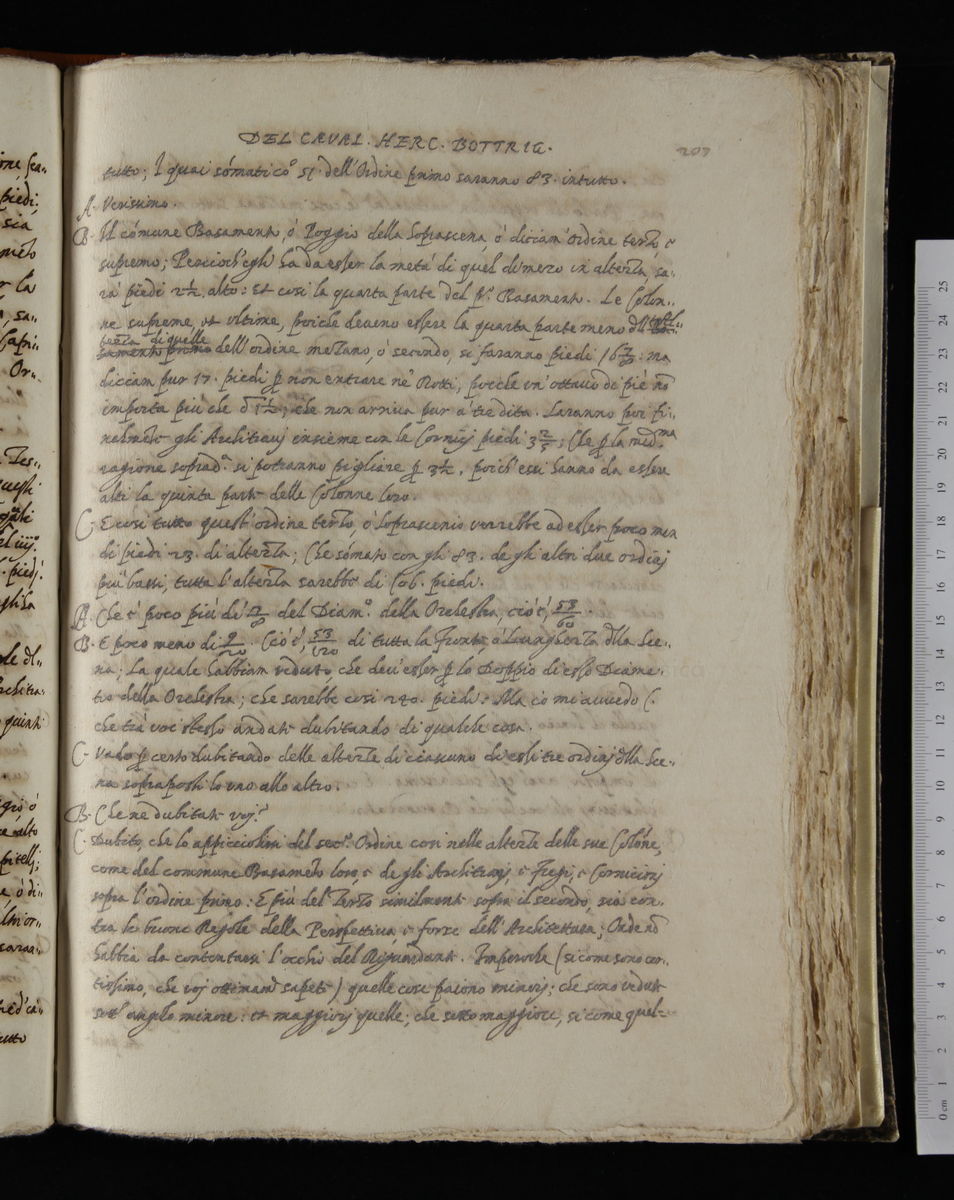 DEL CAVAL. HERC. BOTTRIG.
207
tutto; I quai sómati cõ 51. dell'Ordine primo saranno 83. intutto.
A. Verissimo.
B. Il cómune Basamento ó Poggio della Soprascena, ó diciam' Ordine terzo, e
supremo; Percioch'egli hà da esser la metà di quel di mezo in altezza, sa..
rà piedi 2½ alto: Et cosi la quarta parte del pº. Basamento. Le Colon..
ne supreme, et ultime, poiche deveno essere la quarta parte meno
di quelle dell'ordine mezano, ó secondo, si faranno piedi 16 ma
diciam pur 17. piedi p non entrare ne' Rotti, poiche un' ottavo de piè nõ
importa più che 1½; che non arriva pur a' tre dita. Saranno poi fi..
nalmẽte gli Architravi insieme con le Cornicij piedi 3⅖; Che p la med.ma
ragione soprad.a si potranno pigliare p 3½. poich'essi hanno da essere
alti la quinta parte delle Colonne loro.
C. E cosi tutto quest'ordine terzo, ó Soprascenio verrebbe ad esser poco men
di piedi 23. di altezza; Che sómato con gli 83. de gli altri due ordini
più bassi, tutta l'altezza sarebbe di 106. piedi.
A. Che è poco più di del Diam.º della Orchestra, cioè, 53/60.
B. E poco meno di 9/20. Cioè, 53/120 di tutta la Fronte, ó Lunghezza dlla Sce..
na; La quale habbiam veduto, che dev'esser p lo Doppio di esso Diame..
tro della Orchestra; che sarebbe cosi 240. piedi. Ma io me avvedo C.
che trà voi stesso andate dubitando di qualche cosa.
C. Vado p certo dubitando delle altezze di ciascuno di essi tre ordini dlla Sce..
na sopraposti lo uno allo altro.
B. Che ne dubitate voi?
C. Dubito, che lo appicciolirsi del sec.º Ordine cosi nelle altezze delle sue Colóne,
come del commune Basamẽto loro, e de gli Architravi, e Fregi, e Cornicioni
sopra l'ordine primo: E più del Terzo similmente sopra il secondo, sia con..
tra le buone Regole della Perspettiva, e forse dell'Architettura; Onde nõ
habbia da contentarsi l'occhio del Riguardante. Imperoche (si come sono cer..
tissimo, che voi ottimamẽ sapete) quelle cose paiono minori; che sono vedute
sott' angolo minore: et maggiori quelle; che sotto maggiore, si come quel=